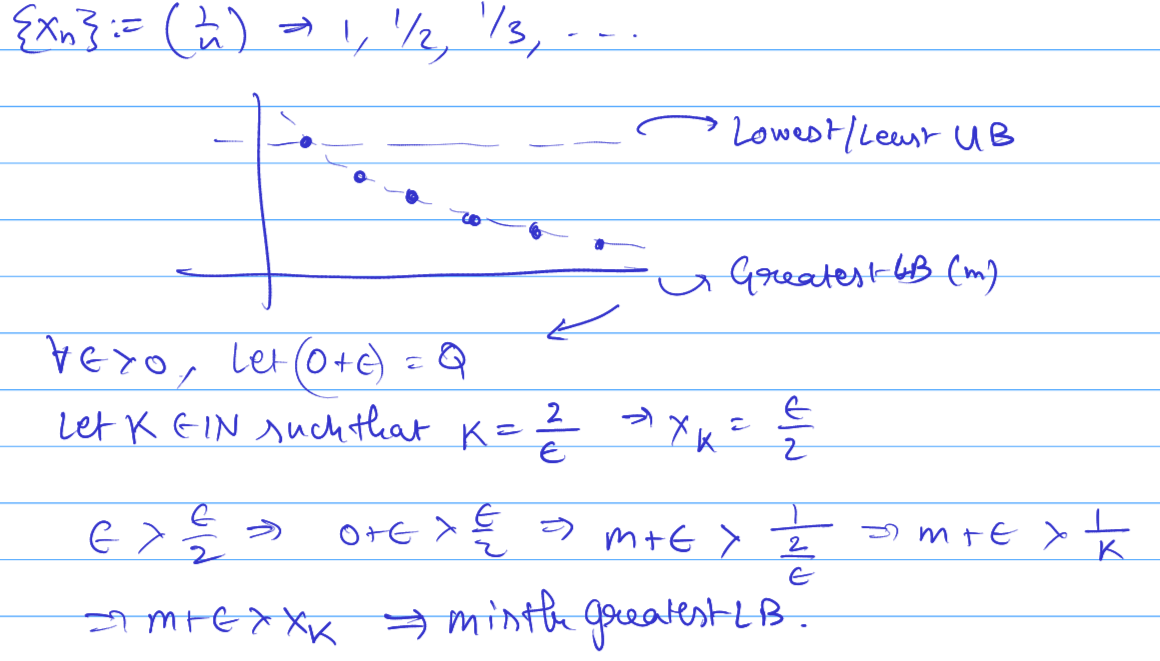 {xₙ} := (1/n) ⇒ 1, 1/2, 1/3, ....
Lowest/Least UB
Greatest LB (m)
∀ ∈ > 0, Let (0+∈) = Q
Let K ∈ IN such that K = 2/∈ ⇒ x_K = ∈/2
∈ > ∈/2 ⇒ 0+∈ > ∈/2 ⇒ m+∈ > 1/(2/∈) ⇒ m+∈ > 1/K
⇒ m+∈ > x_K ⇒ m is the greatest LB.